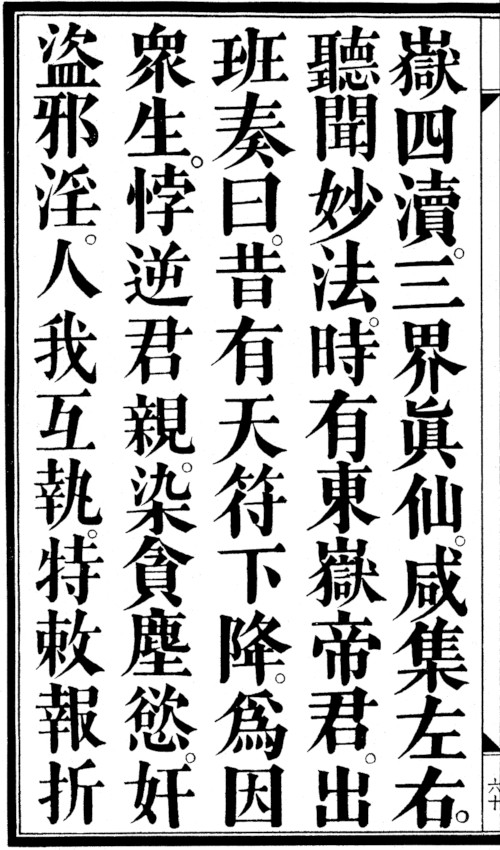 嶽四瀆。三界眞仙。咸集左右。
聽聞妙法。時有東嶽帝君。出
班奏曰。昔有天符下降。爲因
衆生。悖逆君親。染貪塵慾。奸
盜邪淫。人我互執。特敕報折
六十